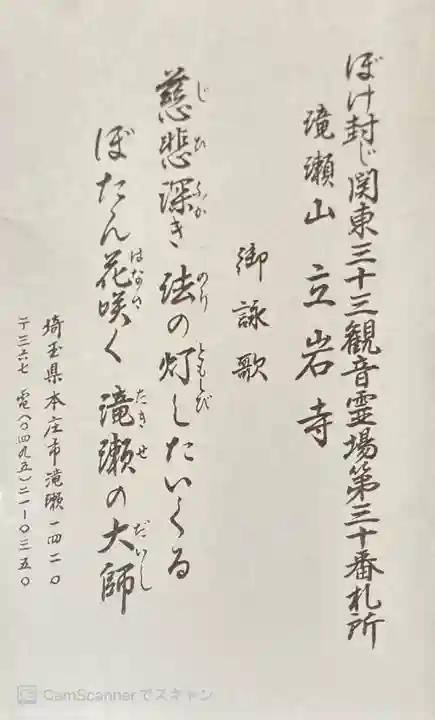 ぼけ封じ関東三十三観音霊場第三十番札所
滝瀬山 立岩寺
御詠歌
慈悲深き法の灯したいくる
ぼたん花咲く滝瀬の大師
埼玉県本庄市滝瀬一四二〇
〒三六七 電(〇四九五)二一-〇三五〇
CamScannerでスキャン